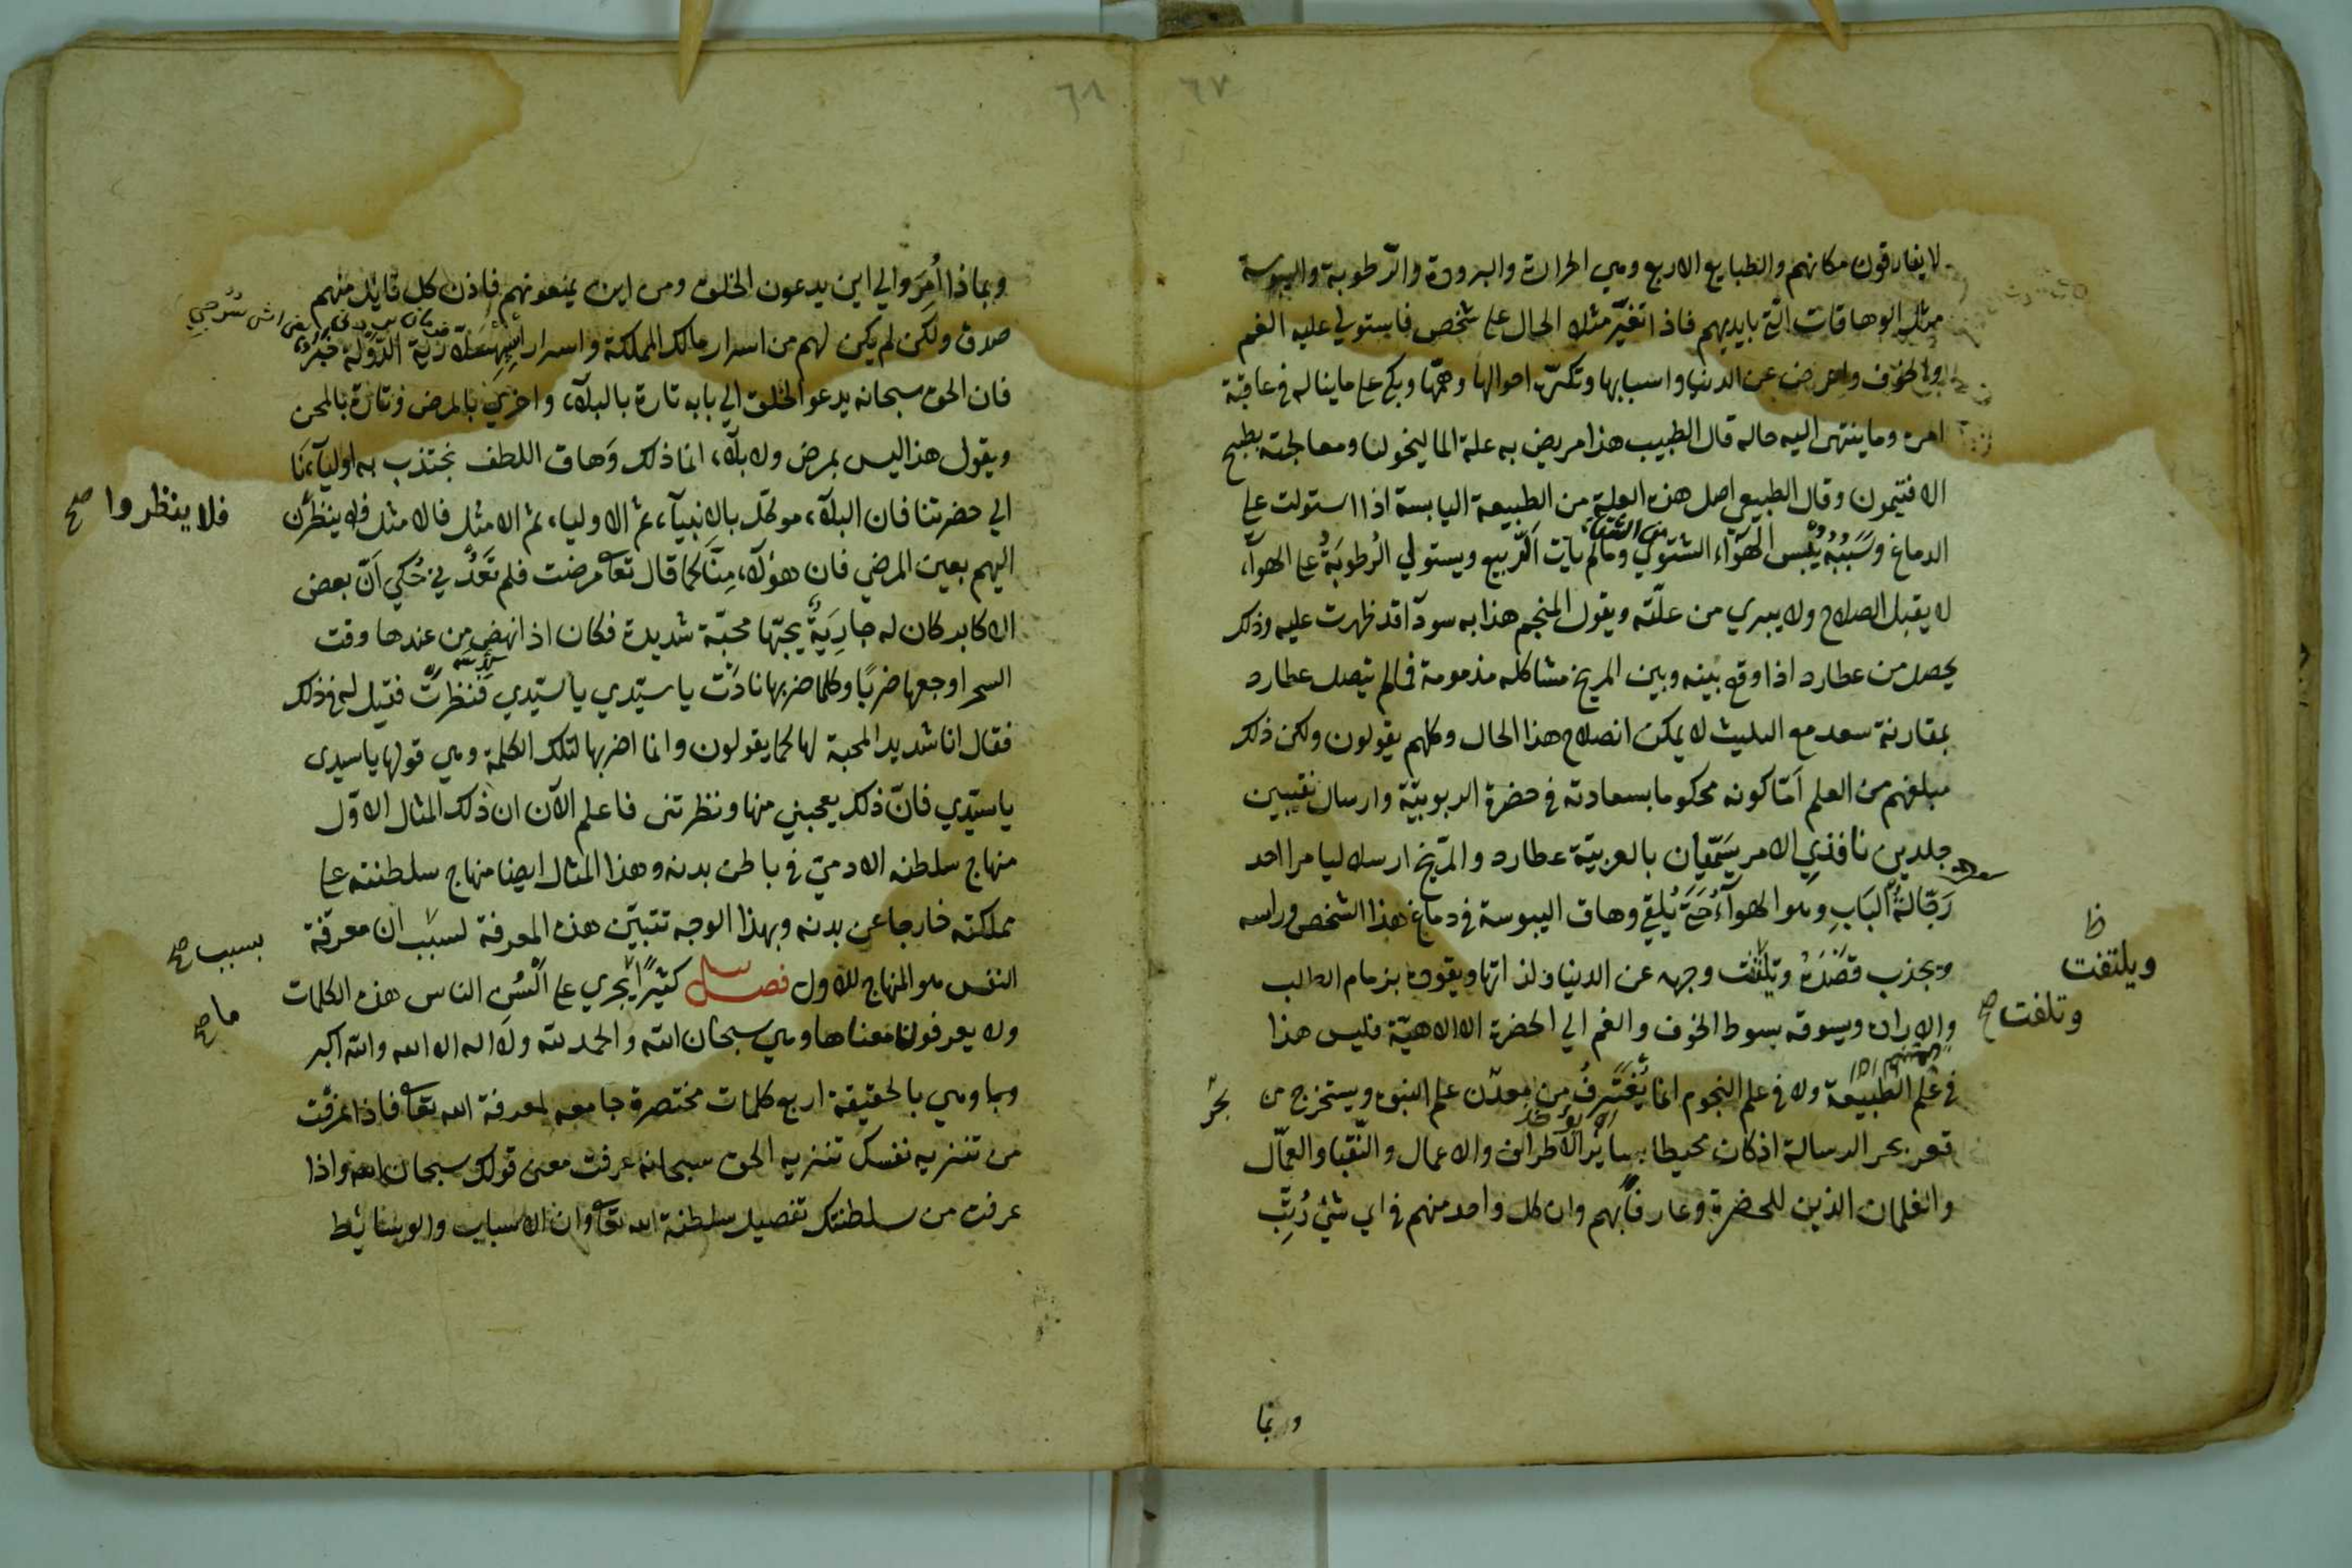 ٦٧
لا يفارقون مكانهم والطبايع الاربع وهي الحرارة والبرودة والرّطوبة واليبوسة
مثل الوهاقات الّتي بايديهم فاذا تغيّر مثلا الحال على شخص فاستولي عليه الغم
والخوف واعرض عن الدنيا واسبابها وتكدّر احوالها وهمّها وبكى على ما يناله في عاقبة
امره وما ينتهى اليه حاله قال الطبيب هذا مريض به علة الماليخوليا ومعالجته بطبيخ
الافتيمون وقال الطبيعي اصل هذه العلة من الطبيعة اليابسة اذا استولت على
الدماغ وسَبَبُهُ يُبْس الهَوَآء الشتوي وما لم يات الرّبيع ويستولي الرُطوبَةُ على الهوآء
لا يقبل الصلاح ولا يبري من علّته ويقول المنجم هذا به سودآ قد ظهرت عليه وذلك
يحصل من عطارد اذا وقع بينه وبين المريخ مشاكله مذمومة فمالم يتصل عطارد
بمقارنة سعد مع التثليث لا يمكن انصلاح هذا الحال وكلهم يقولون ولكن ذلك
مبلغهم من العلم امّا كونه محكوما بسعادته في حضرة الربوبيّة وارسال نقيبين
جلدين نافذي الامر يسَمّيان بالعربيّة عطارد والمرّيخ ارسلا ليامرا احد
رَجّالةُ البَابِ وهو الهوآءُ حَتّي يُلقي وهاق اليبوسة في دماغ هذا الشخص وراسه
ويجذب قصْدَهُ وتلفت وجهه عن الدنيا ولذاتها ويقوده بزمام الطلب
ظ
ويلتفت
وتلفت صح
والارادة ويسوقه بسوط الخوف والغم الي الحضرة الالاهيّة فليس هذا
في علم الطبيعة ولا في علم النجوم انما يُغتَرفُ من معدن علم النبوة ويستخرج من
بحر
قعر بحر الرسالة اذ كان محيطا بسايُر الاطراف والاعمال والنّقبا والعمّال
والغلمان الذين للحضرة وعارفًا بهم وان كل واحد منهم في اي شئ رُتِّبَ
وبما
٦٨
وبماذا أُمِرَ والي اين يدعون الخلق ومن اين يمنعونهم فاذن كل قائل منهم
صدق ولكن لم يكن لهم من اسرار مالك المملكة واسرار الدّوْلة خبرٌ
فان الحق سبحانه يدعو الخلق الي بابه تارة بالبلآء واخري بالمرض وتارة بالمحن
ويقول هذا ليس بمرض ولا بلآء انما ذلك وَهاق اللطف نجتذب به اوليآئنا
الي حضرتنا فان البلآء موكّل بالانبيآء ثم الاوليا، ثم الامثل فالامثل فلا ينظرن
فلا ينظروا صح
اليهم بعين المرضي فان هؤلآء مِنّا كما قال تعا مرضت فلم تَعُدْني حُكي اَنّ بعض
الاكابر كان له جارِيَةٌ يحبّها محبّة شديدة فكان اذا نهض من عندها وقت
السحر اوجعها ضربًا وكلما ضربها نادَت يا سيّدي يا سيّدي فنظرت فقيل له في ذلك
فقال انا شديد المحبة لها كما يقولون وانما اضربها لتلك الكلمة وهي قولها يا سيدى
يا سيّدي فانّ ذلك يعجبني منها ونظرتنى فاعلم الآن ان ذلك المثال الاوّل
منهاج سلطنة الادميّ في باطن بدنه وهذا المثال ايضا منهاج سلطنته على
مملكته خارجا عن بدنه وبهذا الوجه تتبيّن هذه المعرفة لسبب ان معرفة
بسبب صح
النفس هو المنهاج للاول فصل كثيرًا يجري على اَلْسُنِ الناس هذه الكلمات
ما صح
ولا يعرفون معناها وهي سبحان الله والحمد لله ولا اله الا الله والله اكبر
وبما وهي بالحقيقة اربع كلمات مختصرة جامعه لمعرفة الله تعا فاذا عرفت
من تنزيه نفسك تنزيه الحق سبحانه عرفت معنى قولك سبحان الله واذا
عرفت من سلطنتك تفصيل سلطنة الله تعا وان الاسباب والوسائط